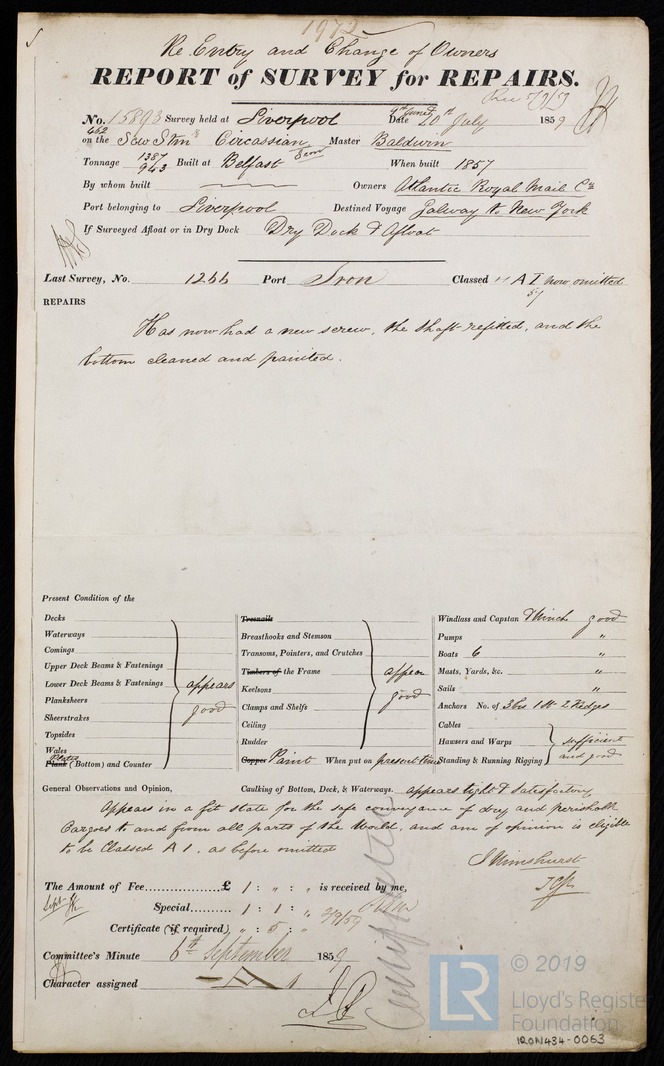 1972
Re Entry and Change of Owners
REPORT of SURVEY for REPAIRS.
Rec 7/9/59
No. 15893 Survey held at Liverpool Date 20th July 1859
462
on the Scw Stmr Circassian Master Baldwin
Tonnage 1387 943 Built at Belfast Iron When built 1857
By whom built Owners Atlantic Royal Mail Co
Port belonging to Liverpool Destined Voyage Galway to New York
If Surveyed Afloat or in Dry Dock Dry Dock & Afloat
Last Survey, No. 1266 Port Iron Classed A I now omitted
57
REPAIRS
Has now had a new screw, the shaft refitted, and the
bottom cleaned and painted.
Present Condition of the
Decks
Waterways
Comings
Upper Deck Beams & Fastenings
Lower Deck Beams & Fastenings
Planksheers
Sheerstrakes
Topsides
Wales
Plates
Plank (Bottom) and Counter
appears
good
Treenails
Breasthooks and Stemson
Transoms, Pointers, and Crutches
Timbers of the Frame
Keelsons
Clamps and Shelfs
Ceiling
Rudder
appear
good
Copper Paint When put on present time
Windlass and Capstan & Winch good
Pumps "
Boats 6 "
Masts, Yards, &c. "
Sails "
Anchors No. of 3 brs 1 St 2 Kedges
Cables
Hawsers and Warps
Standing & Running Rigging
sufficient
and good
General Observations and Opinion, Caulking of Bottom, Deck, & Waterways. appears tight & satisfactory
Appears in a fit state for the safe conveyance of dry and perishable
Cargoes to and from all parts of the World, and am of opinion is eligible
to be Classed A 1. as before omitted
The Amount of Fee............£ 1 : " : " is received by me,
Special.......... 1 : 1 : "
Certificate (if required) " : 5 : "
Committee's Minute 6th September 1859
Character assigned A 1
Certificate
LR © 2019
Lloyd's Register
Foundation
IRON434-0063